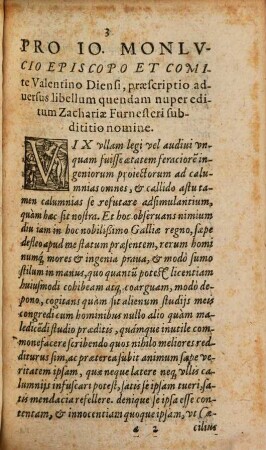 3
PRO IO. MONLV-
CIO EPISCOPO ET COMI
te Valentino Diensi, præscriptio ad-
uersus libellum quendam nuper edi
tum Zachariæ Furnesteri sub-
dititio nomine.
VIX vllam legi vel audiui vn-
quam fuisse ætatem feraciore in-
geniorum proiectorum ad calum-
nias omnes, & callido astu ta-
men calumnias se refutare adsimulantium,
quàm hæc sit nostra. Et hoc obseruans nimium
diu iam in hoc nobilissimo Galliæ regno, sæpe
defleo apud me statum præsentem, rerum homi
numq́; mores & ingenia praua, & modò sumo
stilum in manus, quo quantũ potest, licentiam
huiusmodi cohibeam atq, coarguam, modò de-
pono, cogitans quàm sit alienum studijs meis
congredi cum hominibus nullo alio quàm ma-
ledicẽdi studio præditis, quámque inutile com-
monefacere scribendo quos nihilo meliores red
diturus sim, ac præterea subit animum sape ve-
ritatem ipsam, quæ neque latere neq, vllis ca-
lumnijs infuscari potest, satis se ipsam tueri, sa-
tis mendacia refellere. denique se ipsa esse con-
tentam, & innocentiam quoque ipsam, vt Cæ-
a 2 cilius